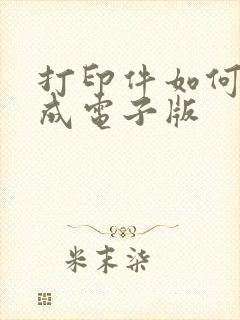 打印件如何
成电子版
米末柒